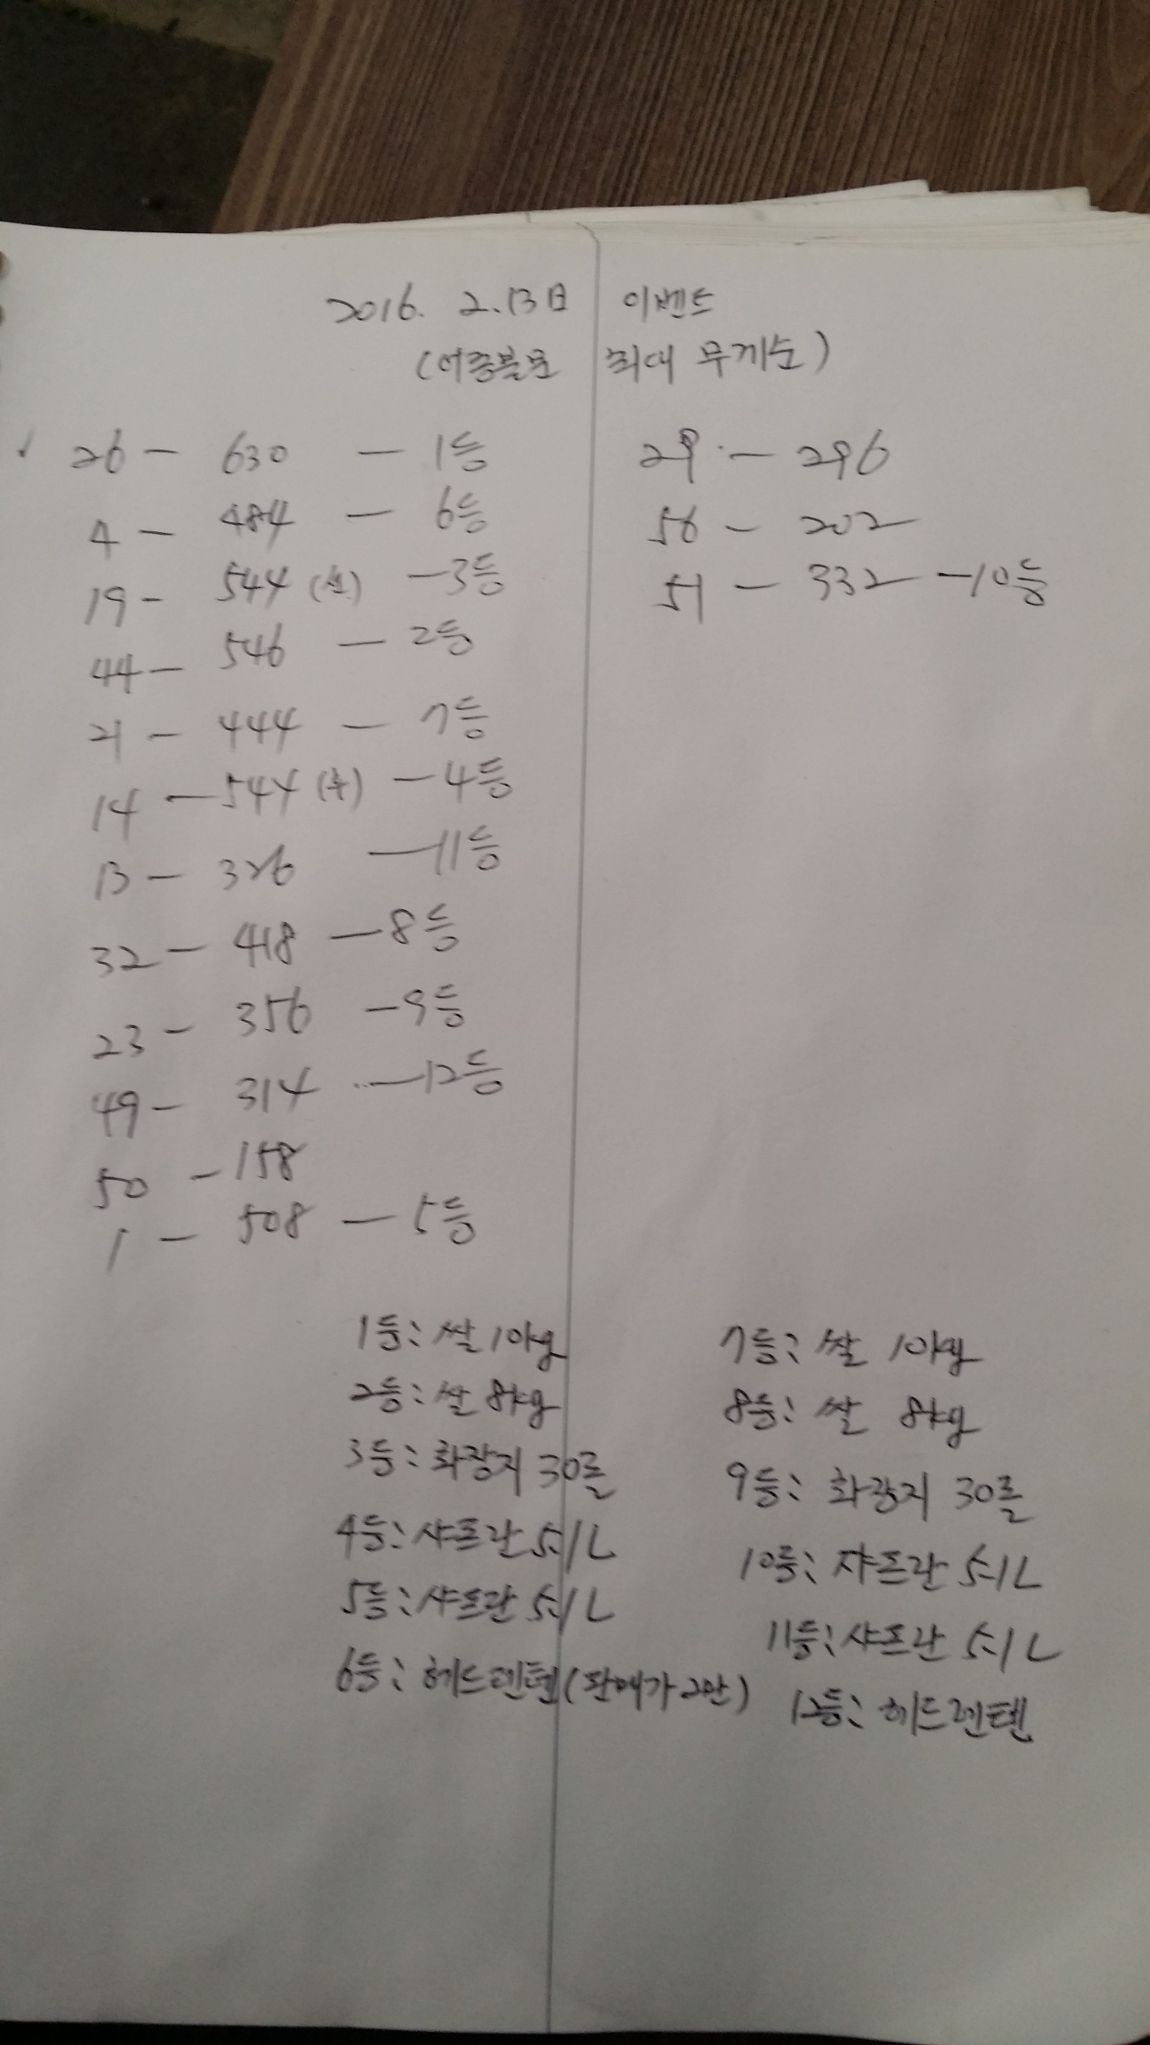 2016. 2.13日 이벤트
(어종불문 최대 무게순)
26 - 630 - 1등
4 - 484 - 6등
19 - 544 (선) - 3등
44 - 546 - 2등
21 - 444 - 7등
14 - 544 (후) - 4등
13 - 326 - 11등
32 - 418 - 8등
23 - 356 - 9등
49 - 314 - 12등
50 - 158
1 - 508 - 5등
29 - 296
56 - 202
51 - 332 - 10등
1등: 쌀 10kg
2등: 쌀 8kg
3등: 화장지 30롤
4등: 샤프란 5.1L
5등: 샤프란 5.1L
6등: 헤드렌턴 (판매가 2만)
7등: 쌀 10kg
8등: 쌀 8kg
9등: 화장지 30롤
10등: 샤프란 5.1L
11등: 샤프란 5.1L
12등: 헤드렌텐